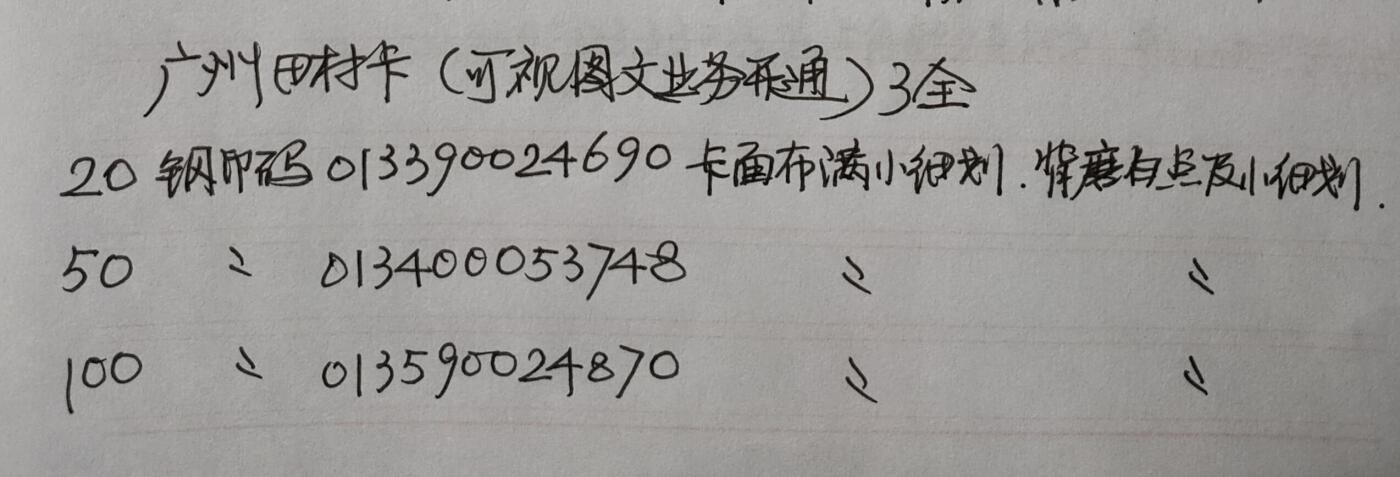 广州田村卡（可视图文业务开通）3全
20 钢印码 013390024690 卡面布满小细划．背磨白点及小细划．
50 〃 013400053748 〃 〃
100 〃 013590024870 〃 〃